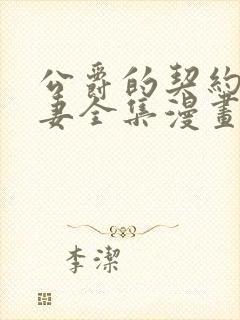 公爵的契約
妻全集漫畫
李潔